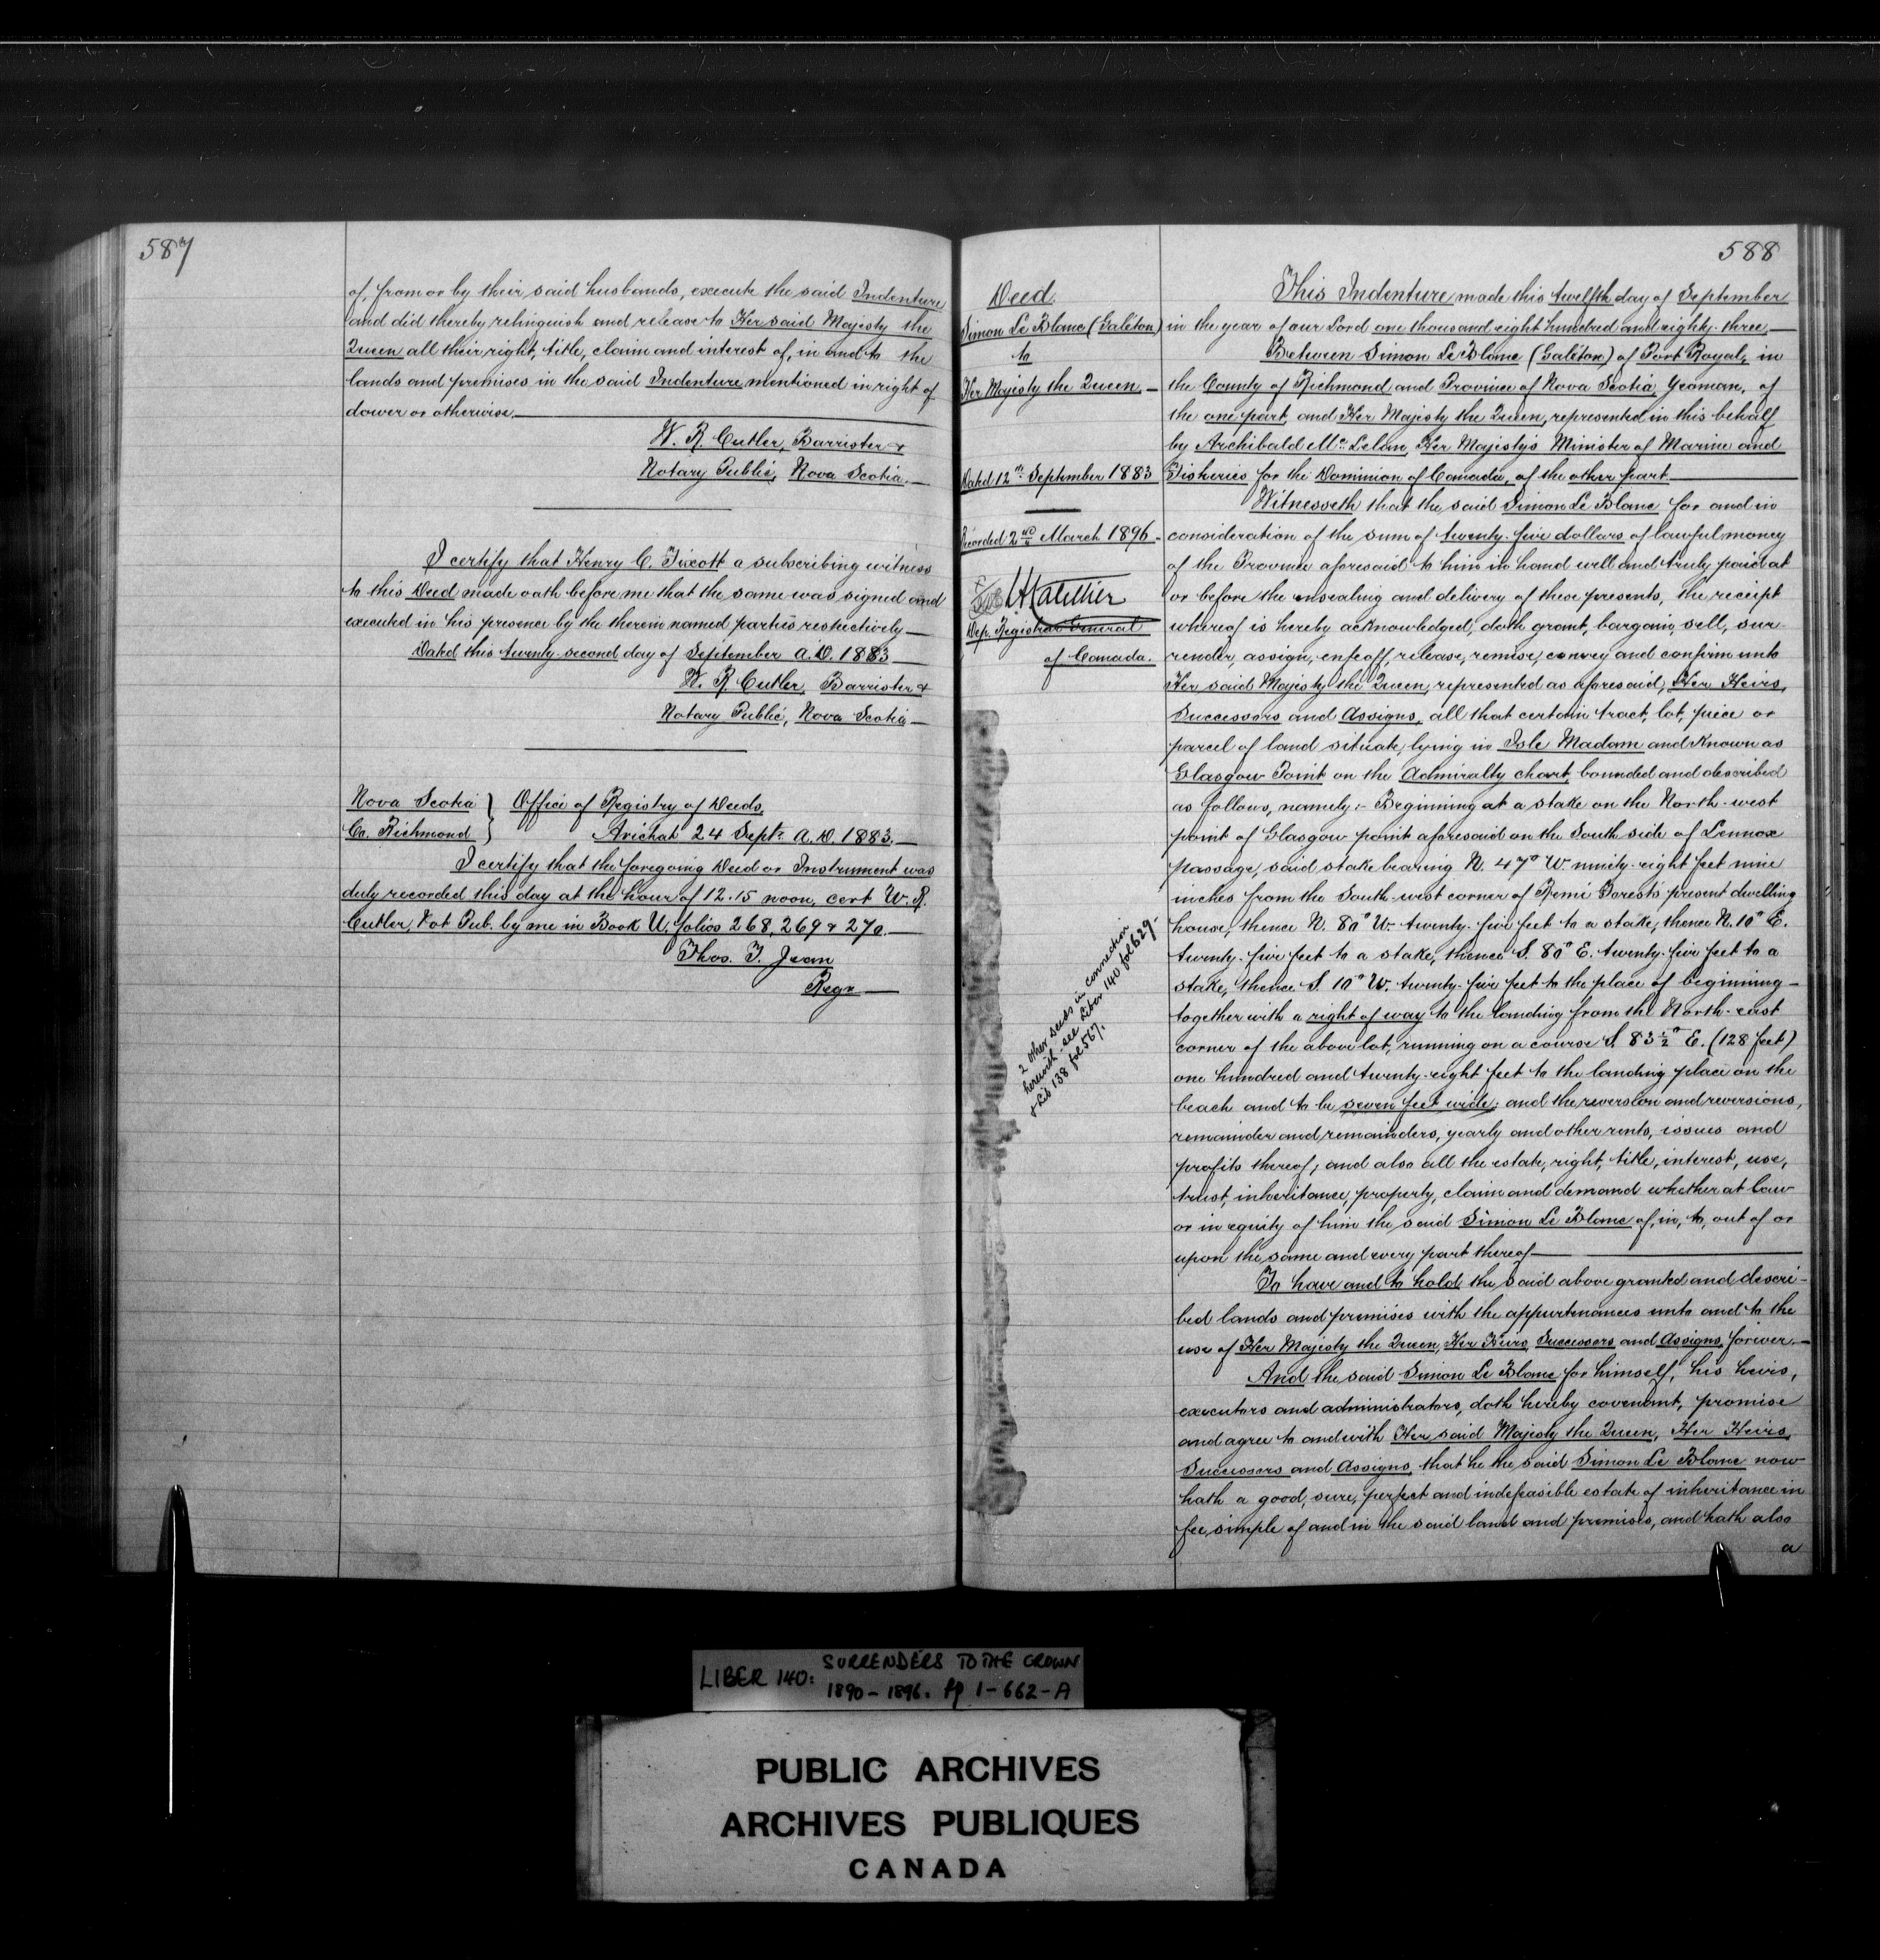 587
of, from or by their said husbands, execute the said Indenture
and did thereby relinquish and release to Her said Majesty the
Queen all their right, title, claim and interest of, in and to the
lands and premises in the said Indenture mentioned in right of
dower or otherwise.
W. R. Cutler, Barrister &
Notary Public, Nova Scotia.
I certify that Henry C. a subscribing witness
to this Deed made oath before me that the same was signed and
executed in his presence by the therein named parties respectively
Dated this twenty-second day of September A.D. 1883
W. R. Cutler, Barrister &
Notary Public, Nova Scotia
Nova Scotia } Office of Registry of Deeds,
Co. Richmond } Arichat 24 Septr. A.D. 1883.
I certify that the foregoing Deed or Instrument was
duly recorded this day at the hour of 12.15 noon, cert W. R.
Cutler, Not Pub. by me in Book U, folios 268, 269 & 270.
Thos. T. Jean
Regr
588
Deed.
Simon Le Blanc (Galéton)
to
Her Majesty the Queen
Dated 12th September 1883
Recorded 2nd March 1896.
Dep. Registrar General
of Canada.
2 other deeds in connection
herewith - see Liber 140 fol 629-
& Lib 138 fol 567.
This Indenture made this twelfth day of September
in the year of our Lord one thousand eight hundred and eighty-three
Between Simon Le Blanc (Galéton) of Port Royal, in
the County of Richmond and Province of Nova Scotia, Yeoman, of
the one part, and Her Majesty the Queen, represented in this behalf
by Archibald Mc. Lelan, Her Majesty's Minister of Marine and
Fisheries for the Dominion of Canada, of the other part.
Witnesseth that the said Simon Le Blanc for and in
consideration of the sum of twenty-five dollars of lawful money
of the Province aforesaid to him in hand well and truly paid at
or before the ensealing and delivery of these presents, the receipt
whereof is hereby acknowledged, doth grant, bargain, sell, sur-
render, assign, enfeoff, release, remise, convey and confirm unto
Her said Majesty the Queen, represented as aforesaid, Her Heirs,
Successors and Assigns, all that certain tract, lot, piece or
parcel of land situate, lying in Isle Madam and Known as
Glasgow Point on the Admiralty chart, bounded and described
as follows, namely:- Beginning at a stake on the North-west
point of Glasgow point aforesaid on the South side of Lennox
Passage, said stake bearing N. 47° W. ninety-eight feet nine
inches from the South-west corner of Remi Forest's present dwelling
house, thence N. 80° W. twenty-five feet to a stake, thence N. 10° E.
twenty-five feet to a stake, thence S. 80° E. twenty-five feet to a
stake, thence S. 10° W. twenty-five feet to the place of beginning -
together with a right of way to the landing from the North-east
corner of the above lot, running on a course S. 83 1/2° E. (128 feet)
one hundred and twenty-eight feet to the landing place on the
beach and to be seven feet wide; and the reversion and reversions,
remainder and remainders, yearly and other rents, issues and
profits thereof, and also all the estate, right, title, interest, use,
trust, inheritance, property, claim and demand whether at law
or in equity of him the said Simon Le Blanc of, in, to, out of or
upon the same and every part thereof
To have and to hold the said above granted and descri-
bed lands and premises with the appurtenances unto and to the
use of Her Majesty the Queen, Her Heirs, Successors and Assigns, forever.
And the said Simon Le Blanc for himself, his heirs,
executors and administrators, doth hereby covenant, promise
and agree to and with Her said Majesty the Queen, Her Heirs,
Successors and Assigns, that he the said Simon Le Blanc now
hath a good, sure, perfect and indefeasible estate of inheritance in
fee simple of and in the said land and premises, and hath also
a
LIBER 140: SURRENDERS TO THE CROWN
1890-1896. Pp 1-662-A
PUBLIC ARCHIVES
ARCHIVES PUBLIQUES
CANADA